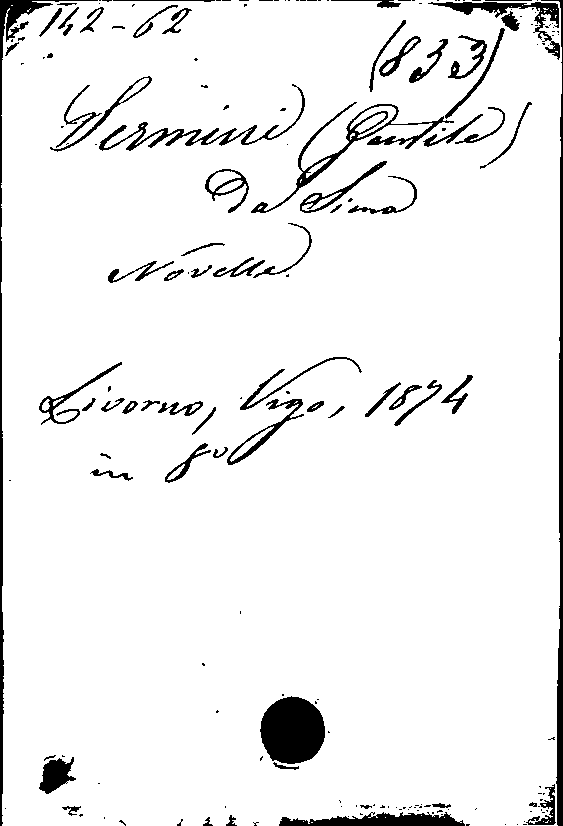 142-62
(833)
Sermini (Gentile)
Da Siena
Novelle.
Livorno, Vigo, 1874
in 8º